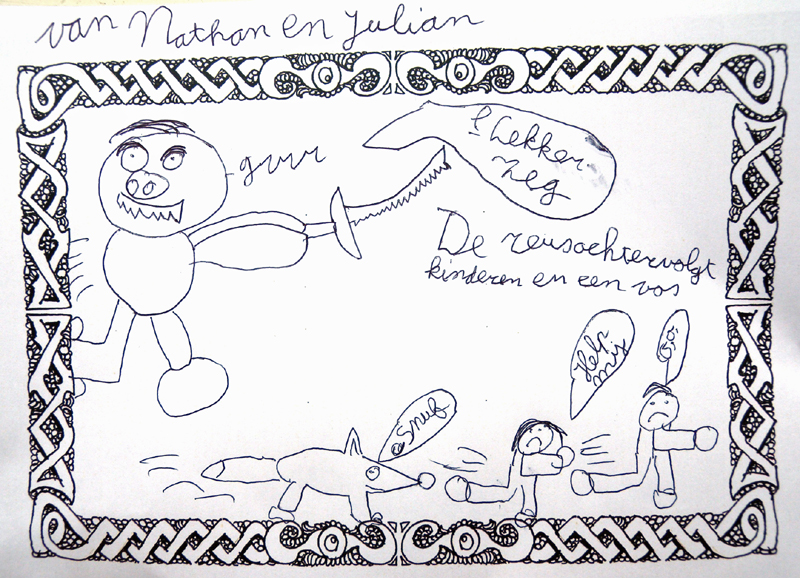 van Nathan en Julian
grrr
Lekker
zeg
De reus achtervolgt
kinderen en een vos
Help
mij
Snuf